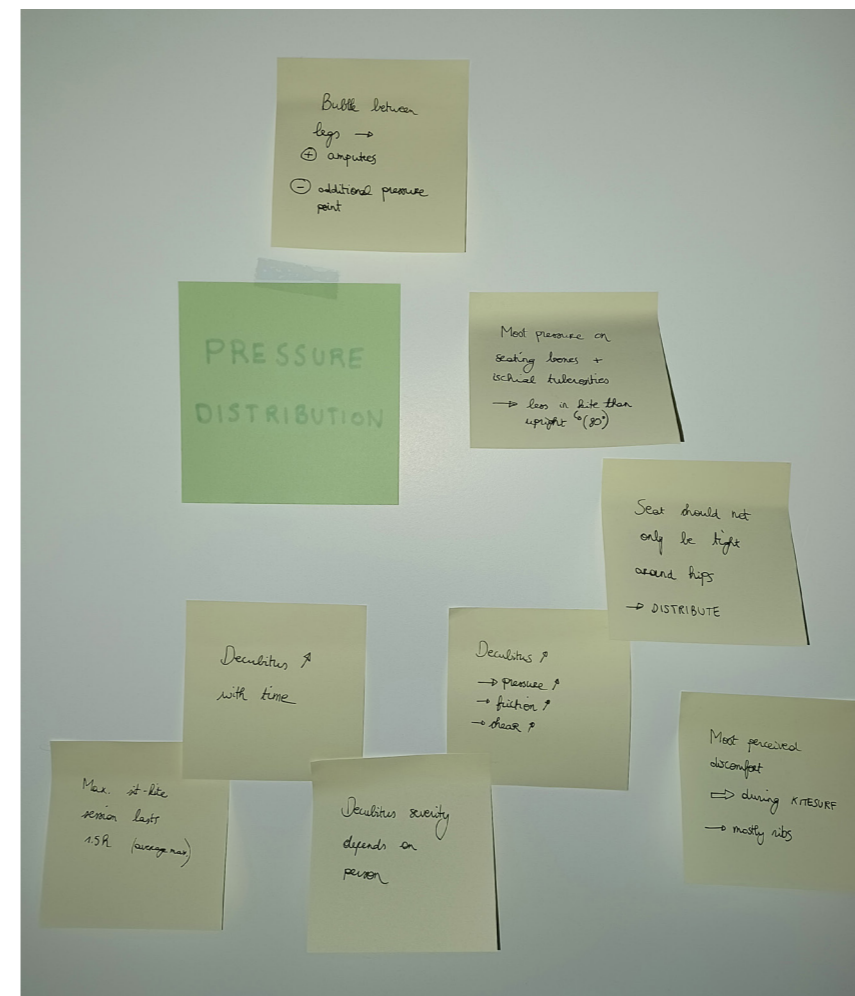 Bubble between
legs →
⊕ amputees
⊖ additional pressure
point
PRESSURE
DISTRIBUTION
Most pressure on
seating bones +
ischial tuberosities
→ less in kite than
upright ↳(80°)
Seat should not
only be tight
around hips
→ DISTRIBUTE
Decubitus ↗
with time
Decubitus ↗
→ pressure ↗
→ friction ↗
→ shear ↗
Most perceived
discomfort
⇒ during KITESURF
→ mostly ribs
Max. sit-kite
session lasts
1.5h (average max)
Decubitus severity
depends on
person